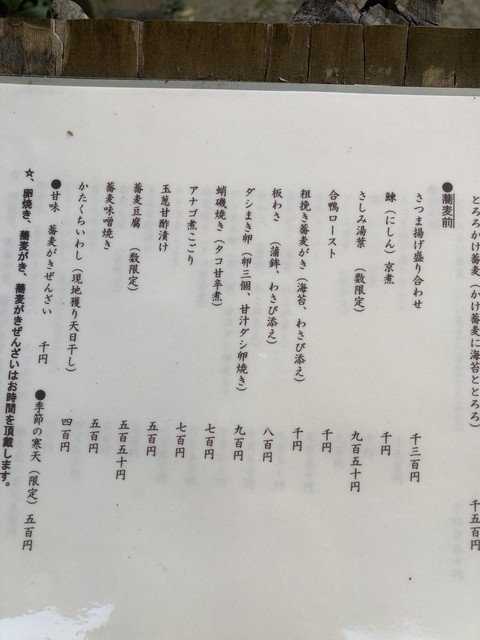 とろろかけ蕎麦（かけ蕎麦に海苔ととろろ） 千五百円
●蕎麦前
さつま揚げ盛り合わせ 千三百円
鰊（にしん）京煮 千円
さしみ湯葉 （数限定） 九百五十円
合鴨ロースト 千円
粗挽き蕎麦がき（海苔、わさび添え） 千円
板わさ （蒲鉾、わさび添え） 八百円
ダシまき卵（卵三個、甘汁ダシ卵焼き） 九百円
蛸磯焼き（タコ甘辛煮） 七百円
アナゴ煮こごり 七百円
玉葱甘酢漬け 五百円
蕎麦豆腐 （数限定） 五百五十円
蕎麦味噌焼き 五百円
かたくちいわし（現地獲り天日干し） 四百円
●甘味 蕎麦がきぜんざい 千円 ●季節の寒天（限定） 五百円
☆、卵焼き、蕎麦がき、蕎麦がきぜんざいはお時間を頂戴します。